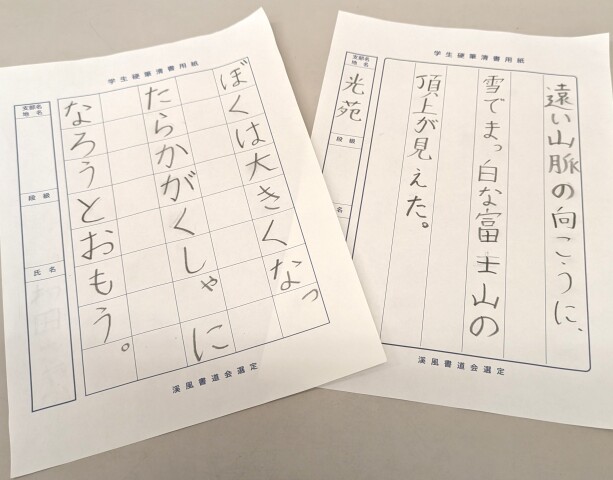 学生硬筆清書用紙
ぼくは大きくなっ
たらかがくしゃに
なろうとおもう。
支部名
地名
段級
氏名
溪風書道会選定
学生硬筆清書用紙
遠い山脈の向こうに、
雪でまっ白な富士山の
頂上が見えた。
支部名
地名
光苑
段級
名
溪風書道会選定